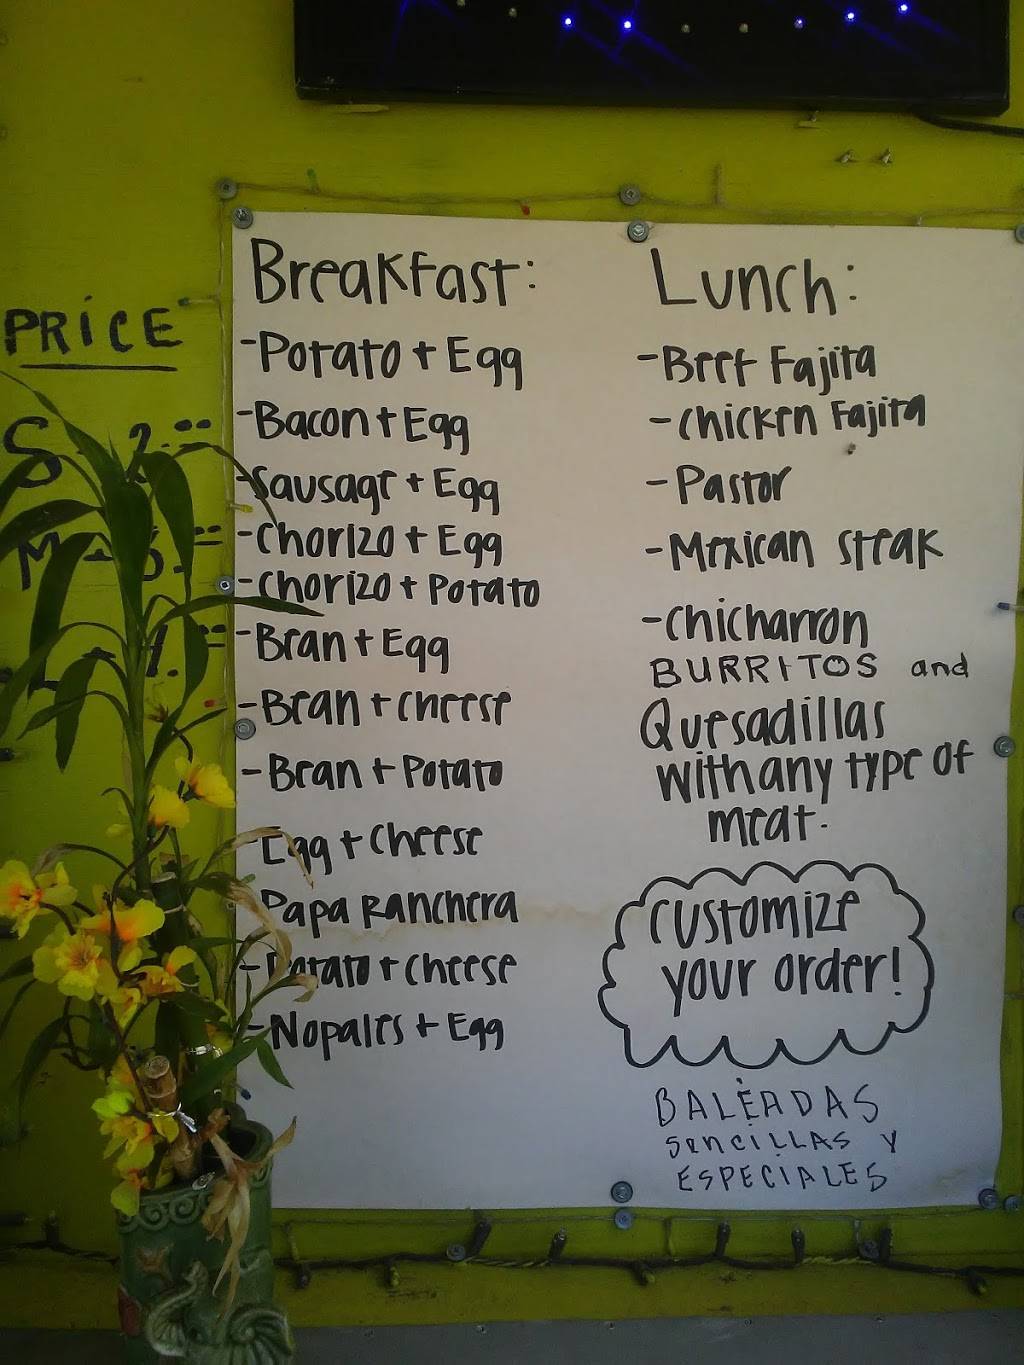 PRICE
S - 2.
M - 3.
L - 4.
Breakfast:
- Potato + Egg
- Bacon + Egg
- Sausage + Egg
- Chorizo + Egg
- Chorizo + Potato
- Bean + Egg
- Bean + Cheese
- Bean + Potato
- Egg + Cheese
Papa Ranchera
- Potato + Cheese
- Nopales + Egg
Lunch:
- Beef Fajita
- Chicken Fajita
- Pastor
- Mexican Steak
- Chicharron
BURRITOS and
Quesadillas
with any type of
meat.
Customize
your order!
BALEADAS
SENCILLAS Y
ESPECIALES